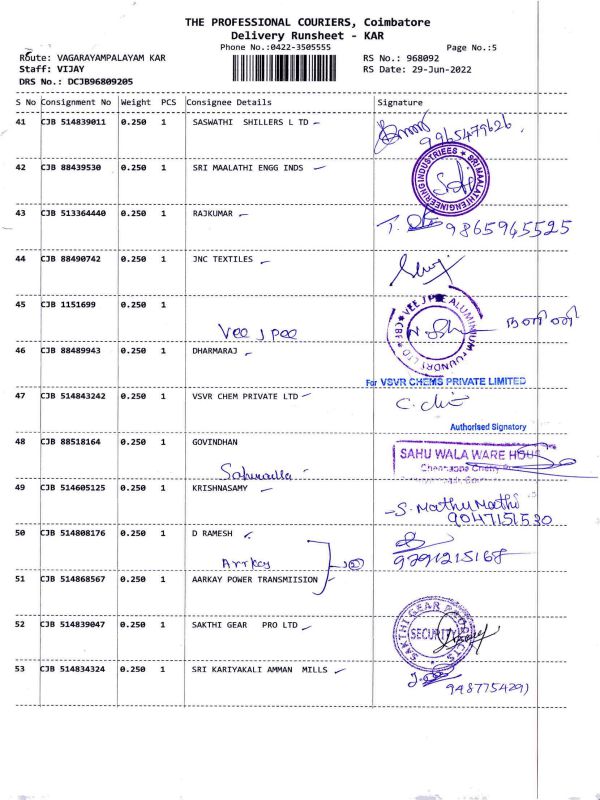 THE PROFESSIONAL COURIERS, Coimbatore
Delivery Runsheet - KAR
Phone No.:0422-3505555 Page No.:5
Route: VAGARAYAMPALAYAM KAR RS No.: 968092
Staff: VIJAY RS Date: 29-Jun-2022
DRS No.: DCJB96809205
S No Consignment No Weight PCS Consignee Details Signature
41 CJB 514839011 0.250 1 SASWATHI SHILLERS L TD
9965479626
42 CJB 88439530 0.250 1 SRI MAALATHI ENGG INDS
SRI MAALATHI ENGINEERING INDUSTRIEES
43 CJB 513364440 0.250 1 RAJKUMAR
9865945525
44 CJB 88490742 0.250 1 JNC TEXTILES
45 CJB 1151699 0.250 1
Vee J Pee
VEE J PEE ALUMINIUM FOUNDRY LTD CBE
நளினி
46 CJB 88489943 0.250 1 DHARMARAJ
For VSVR CHEMS PRIVATE LIMITED
47 CJB 514843242 0.250 1 VSVR CHEM PRIVATE LTD
Authorised Signatory
48 CJB 88518164 0.250 1 GOVINDHAN
SAHU WALA WARE HOUS
49 CJB 514605125 0.250 1 KRISHNASAMY
S. Mathu Mathi
9047151530
50 CJB 514808176 0.250 1 D RAMESH
Arrkay
9791215168
51 CJB 514868567 0.250 1 AARKAY POWER TRANSMIISION
52 CJB 514839047 0.250 1 SAKTHI GEAR PRO LTD
SAKTHI GEAR PRODUCTS
SECURITY
53 CJB 514834324 0.250 1 SRI KARIYAKALI AMMAN MILLS
9487754291